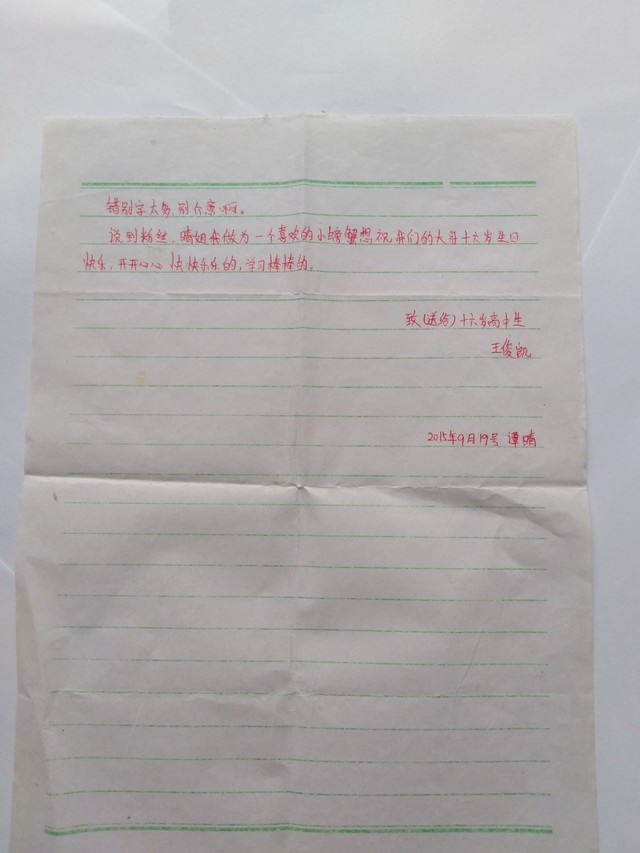 错别字太多,别介意啊。
说到粉丝,晴姐我做为一个喜欢的小螃蟹想祝我们的大哥十六岁生日
快乐,开开心心 快快乐乐的,学习棒棒的。
致(送给)十六岁高中生
王俊凯
2015年9月19号 谭晴